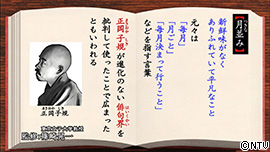 【月並み】
つきな
新鮮味がなく
ありふれていて平凡なこと
元々は
「毎月」
「月ごと」
「毎月決まって行うこと」
などを指す言葉
正岡子規が進化のない俳句界を
はいくかい
批判して使ったことで広まった
ともいわれる
まさおか しき
正岡子規
©NTV